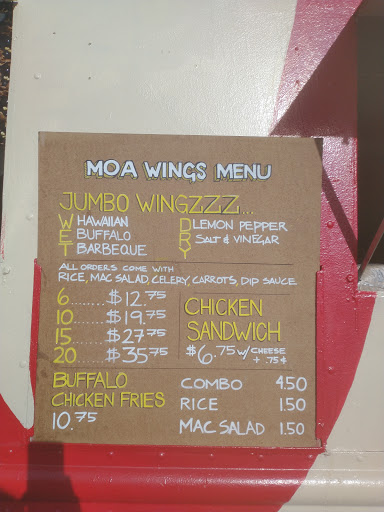 MOA WINGS MENU
JUMBO WINGZZZ...
WET
HAWAIIAN
BUFFALO
BARBEQUE
DRY
LEMON PEPPER
SALT & VINEGAR
ALL ORDERS COME WITH
RICE, MAC SALAD, CELERY, CARROTS, DIP SAUCE
6........$12.75
10......$19.75
15......$27.75
20......$35.75
CHICKEN
SANDWICH
$6.75 W/ CHEESE
+ .75¢
BUFFALO
CHICKEN FRIES
10.75
COMBO 4.50
RICE 1.50
MAC SALAD 1.50